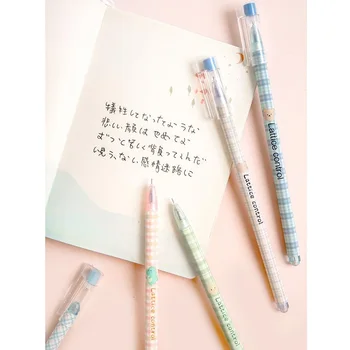 犠牲してなったような
悲しい顔はやめてよ
ずっと苦しく背負ってんだ
思うない感情迷路に
Lattice control
Lattice control
Lattice control
Lattice control